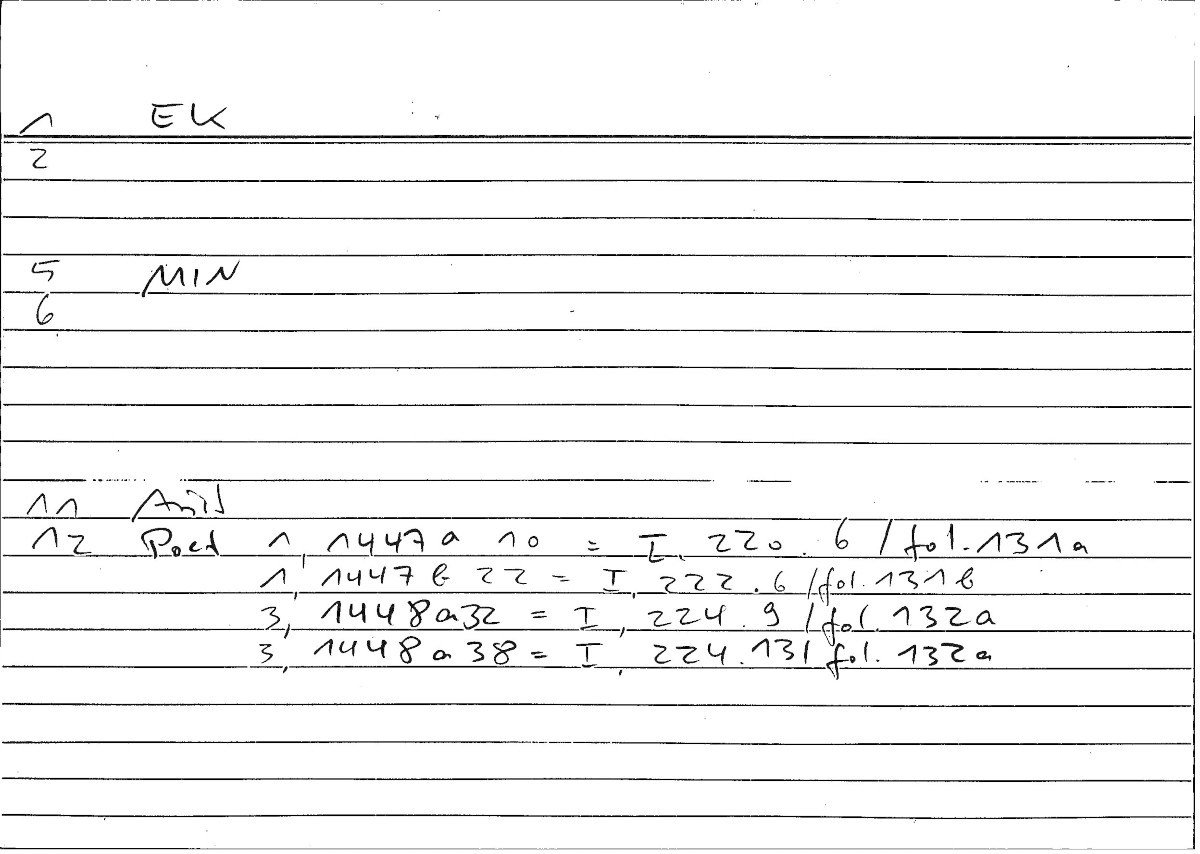 1 EK
2
5 MIN
6
11 Arist
12 Poet 1, 1447a 10 = I, 220.6 / fol. 131a
1, 1447b 22 = I, 222.6 / fol. 131b
3, 1448a32 = I, 224.9 / fol. 132a
3, 1448a38 = I, 224.13 / fol. 132a